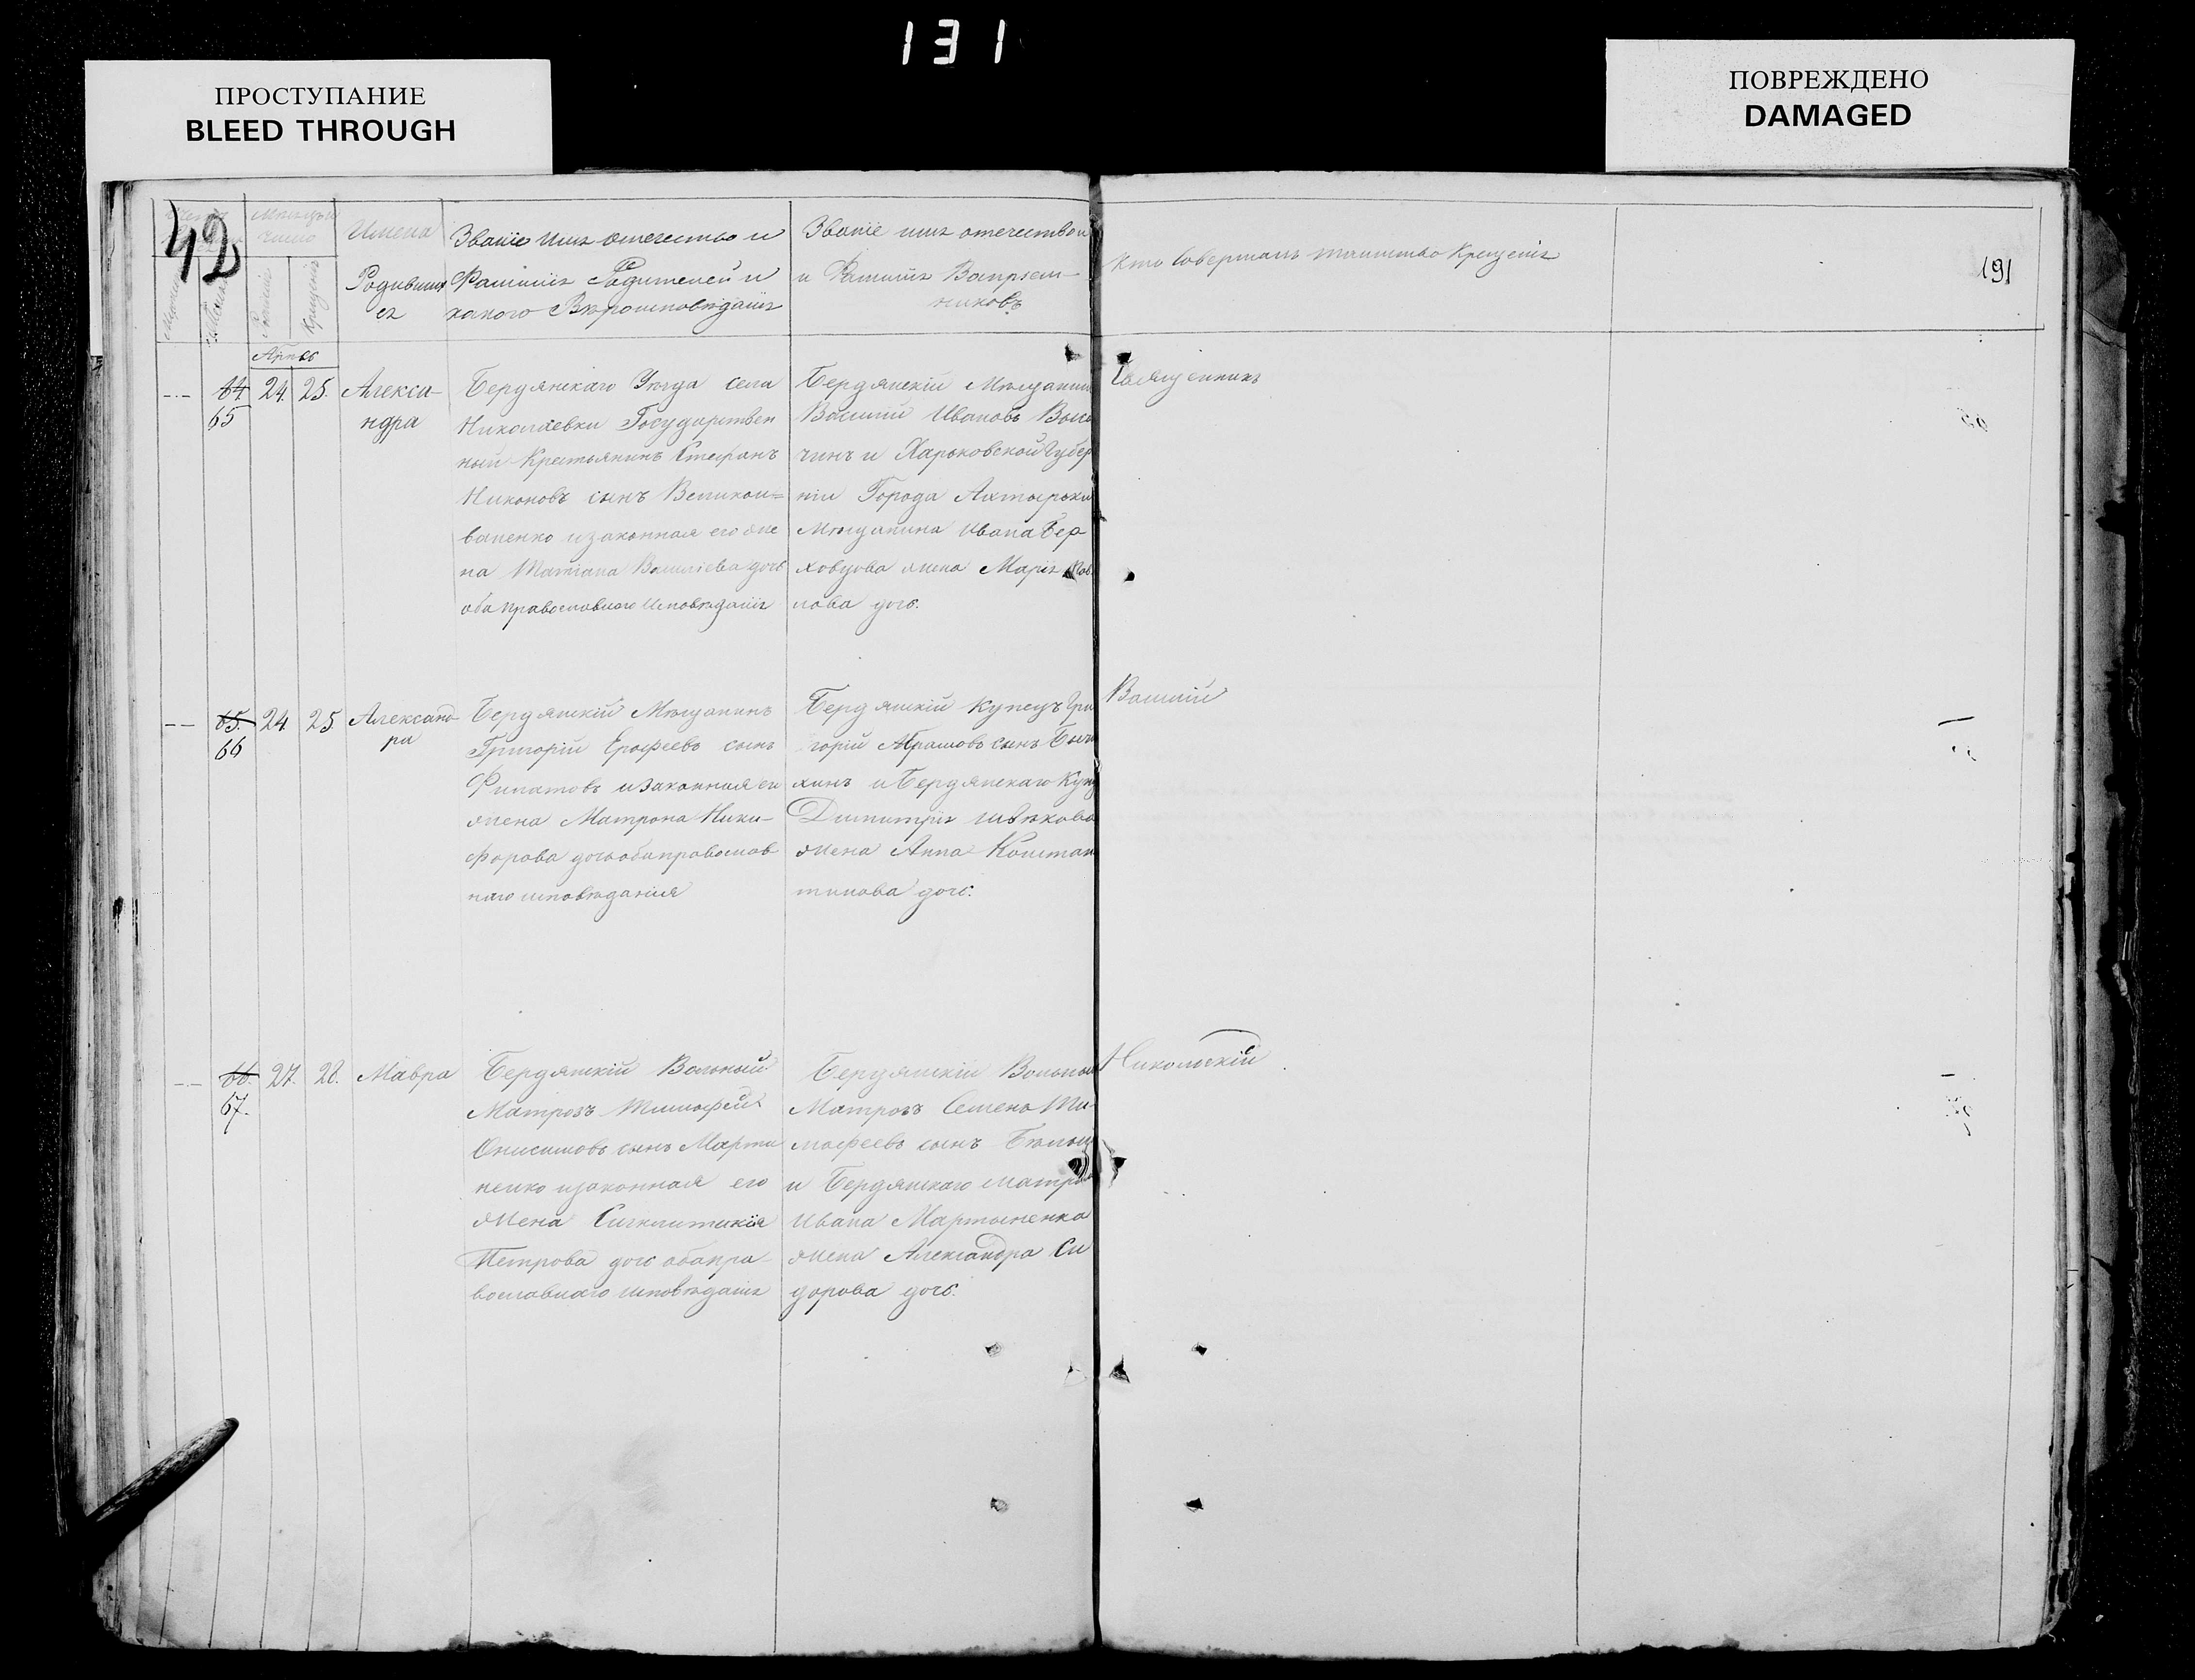 131
ПРОСТУПАНИЕ
BLEED THROUGH
ПОВРЕЖДЕНО
DAMAGED
42
191
Имена
Родивших
ся
Званіе имя отечество и
Фамилія Родителей и
какого Вѣроисповѣданія
Званіе имя отечество и
и Фамилія Воспріем-
никовъ
Кто совершалъ таинство Крещенія
64 24. 25. Алекса-
65 ндра
Бердянскаго Уѣзда села
Николаевки Государствен
ный Крестьянинъ Стефанъ
Никоновъ сынъ Великои=
ваненко и законная его же
на Татіана Василіева дочь
оба православнаго Исповѣданія
Бердянскій Мѣщанин
Василій Ивановъ
чинъ и Харьковской Губер
ніи Города Ахтырки
Мѣщанина Ивана Бер
ховцова жена Марія Пав
лова дочь.
Священникъ
65. 24 25 Александ
66 ра
Бердянскій Мѣщанинъ
Григорій Ерофеевъ сынъ
Филатовъ и законная его
жена Матрона Ники-
форова дочь оба православ
наго исповѣданія
Бердянскій Купецъ Гри
горій Абрамовъ сынъ
хинъ и Бердянскаго Купц
Димитрія
жена Анна Констан
тинова дочь.
Василій
66. 27. 28. Мавра
67.
Бердянскій Вольный
Матрозъ Тимофей
Онисимовъ сынъ Марти
ненко и законная его
жена Сигклитикія
Петрова дочь оба пра
вославнаго исповѣданія
Бердянскій Вольный
Матрозъ Семенъ Ти-
мофеевъ сынъ
и Бердянскаго матро
Ивана Мартыненка
жена Александра Си
дорова дочь.
Никольскій